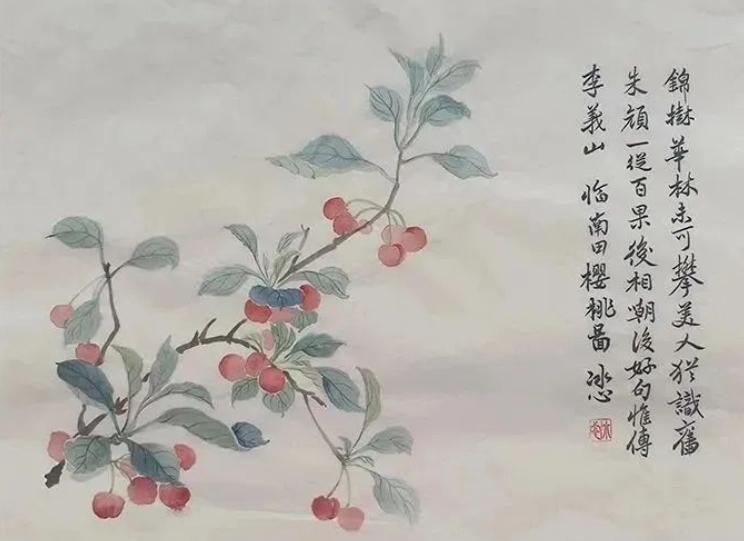 錦樹華林未可攀美人猶識舊
朱顔一從百果後相嘲後好句惟傳
李義山 临南田櫻桃啚